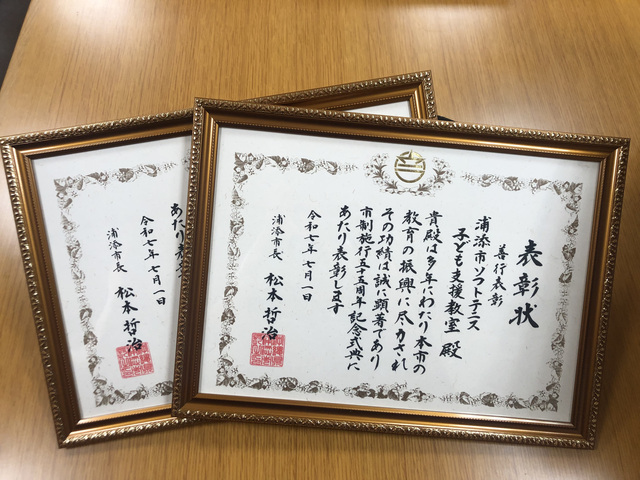 表彰状
善行表彰
浦添市ソフトテニス
子ども支援教室 殿
貴殿は多年にわたり本市の
教育の振興に尽力され
その功績は誠に顕著であり
市制施行五十五周年記念式典に
あたり表彰します
令和七年七月一日
浦添市長 松本哲治
あたり表彰
令和七年七月一日
浦添市長 松本哲治